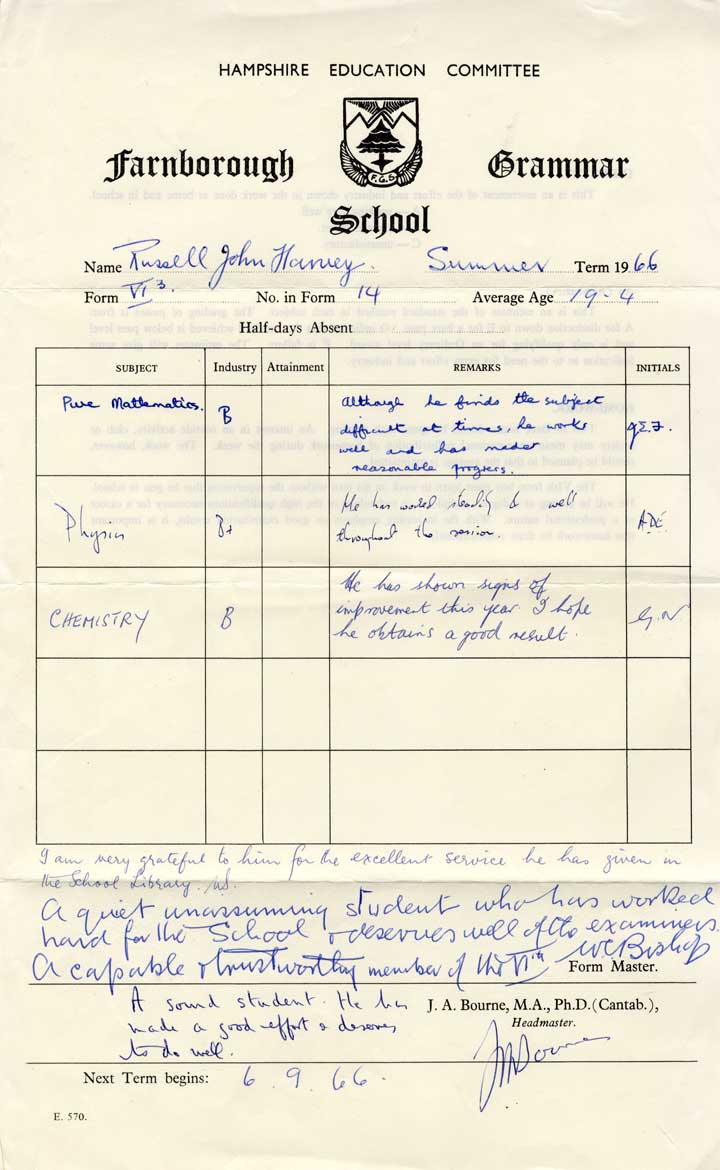 HAMPSHIRE EDUCATION COMMITTEE
F.G.S
Farnborough Grammar
School
Name Russell John Harvey. Summer Term 1966
Form VI 3. No. in Form 14 Average Age 19-4
Half-days Absent
SUBJECT Industry Attainment REMARKS INITIALS
Pure Mathematics. B Although he finds the subject
difficult at times, he works
well and has made
reasonable progress. g.E.J.
Physics B+ He has worked steadily & well
throughout the session. A.D.E.
CHEMISTRY B He has shown signs of
improvement this year. I hope
he obtains a good result. G.N
I am very grateful to him for the excellent service he has given in
the School Library.
A quiet unassuming student who has worked
hard for the School & deserves well of the examiners.
A capable & trustworthy member of the VIth WCBishop
Form Master.
A sound student. He has
made a good effort & deserves
to do well.
J. A. Bourne, M.A., Ph.D.(Cantab.),
Headmaster.
JABourne
Next Term begins: 6.9.66.
E. 570.